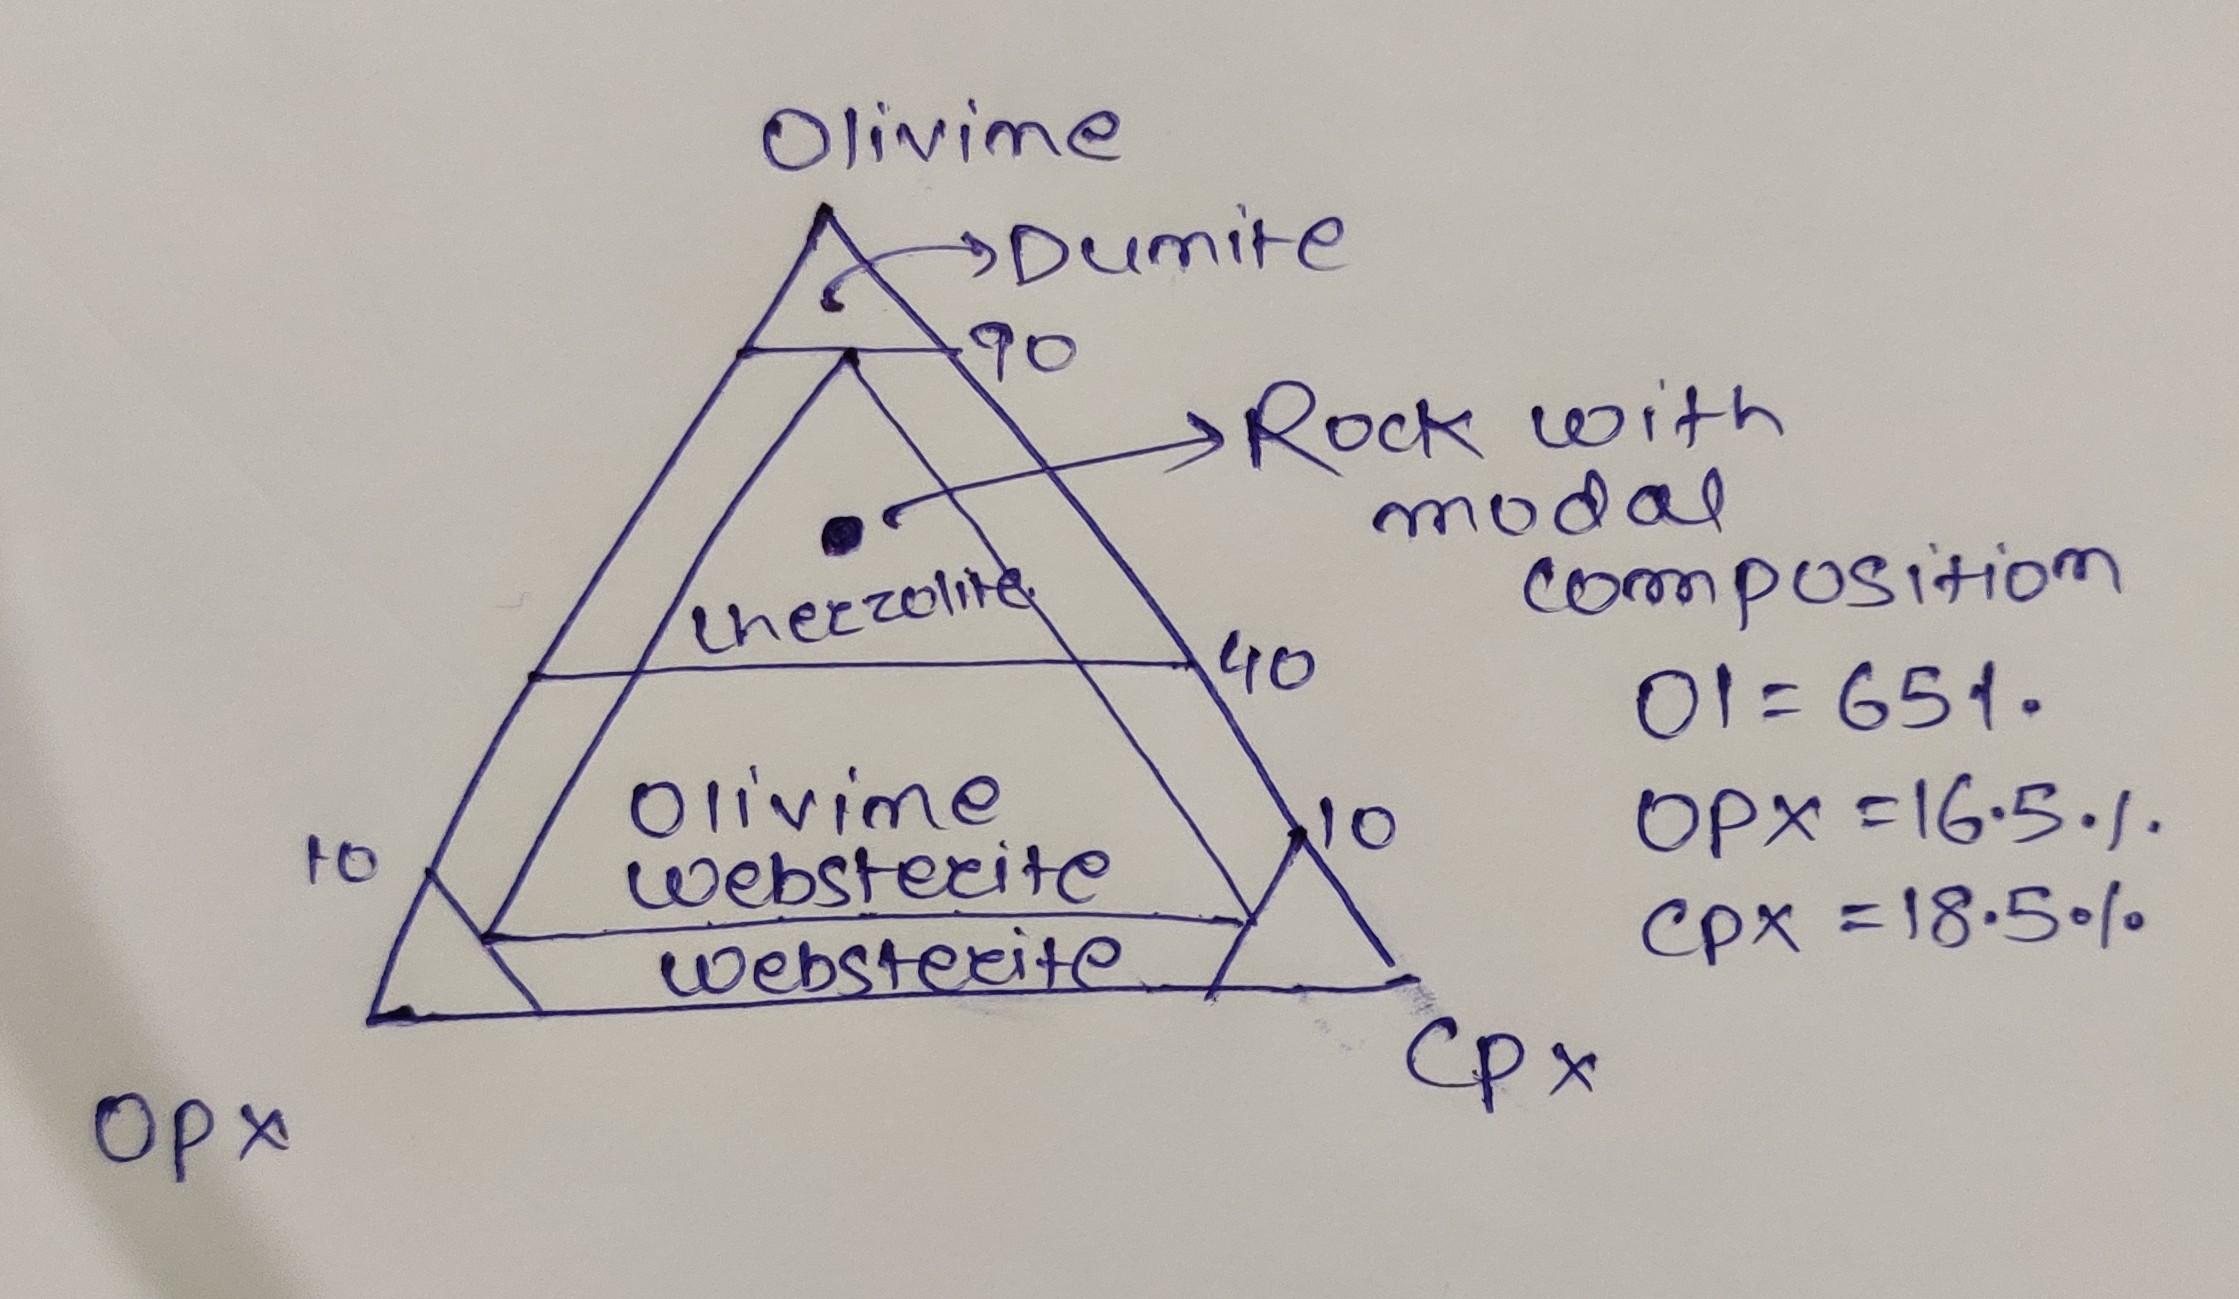 Olivine
Dunite
90
Rock with
modal
composition
Lherzolite
40
Ol = 65%
Olivine
Websterite
10
10
Opx = 16.5%
Cpx = 18.5%
Websterite
Cpx
Opx